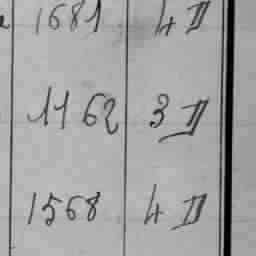 1681 4 II
1162 3 II
1568 4 II